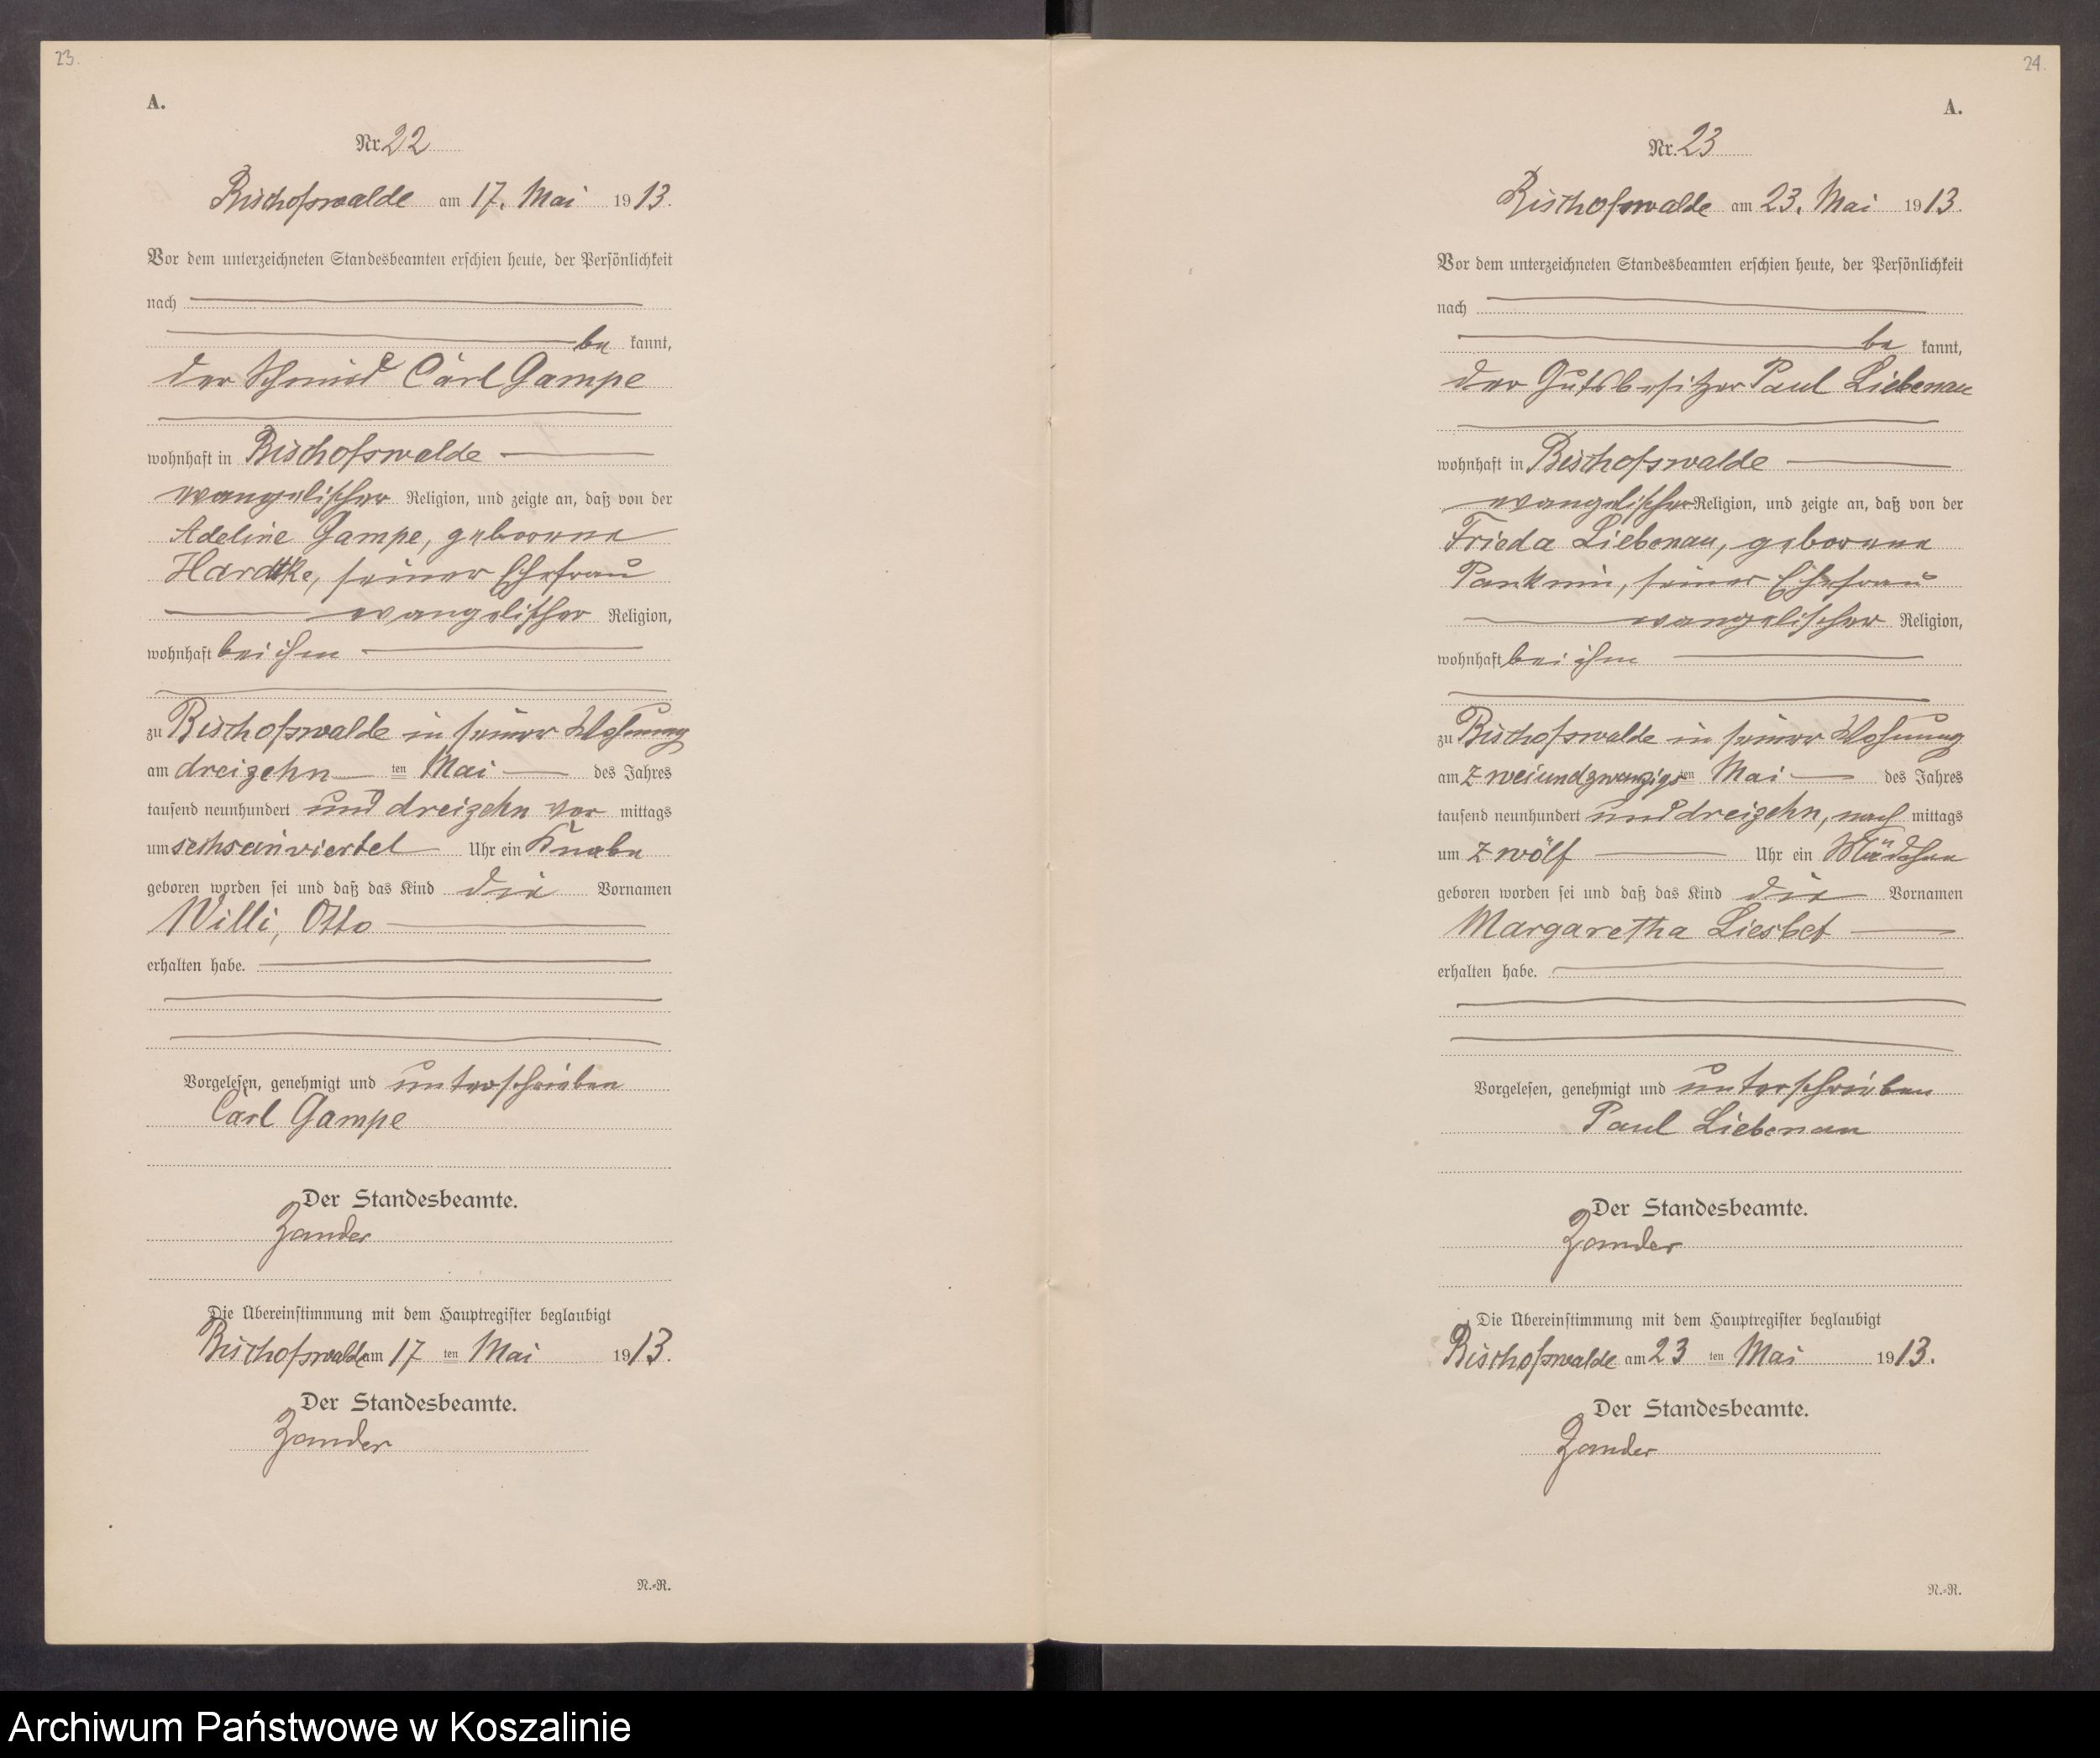 23.
A.
Nr. 22
Bischofswalde am 17. Mai 1913.
Vor dem unterzeichneten Standesbeamten erschien heute, der Persönlichkeit
nach
be kannt,
der Schmied Carl Gampe
wohnhaft in Bischofswalde
evangelischer Religion, und zeigte an, daß von der
Adeline Gampe, geborene
Hardtke, seiner Ehefrau
evangelischer Religion,
wohnhaft bei ihm
zu Bischofswalde in seiner Wohnung
am dreizehn ten Mai des Jahres
tausend neunhundert und dreizehn vor mittags
um sechseinviertel Uhr ein Knabe
geboren worden sei und daß das Kind die Vornamen
Willi, Otto
erhalten habe.
Vorgelesen, genehmigt und unterschrieben
Carl Gampe
Der Standesbeamte.
Zander
Die Übereinstimmung mit dem Hauptregister beglaubigt
Bischofswalde am 17 ten Mai 1913.
Der Standesbeamte.
Zander
N.-R.
24.
A.
Nr. 23
Bischofswalde am 23. Mai 1913.
Vor dem unterzeichneten Standesbeamten erschien heute, der Persönlichkeit
nach
be kannt,
der Gutsbesitzer Paul Liebenau
wohnhaft in Bischofswalde
evangelischer Religion, und zeigte an, daß von der
Frieda Liebenau, geborene
Panknin, seiner Ehefrau
evangelischer Religion,
wohnhaft bei ihm
zu Bischofswalde in seiner Wohnung
am zweiundzwanzigs ten Mai des Jahres
tausend neunhundert und dreizehn, nach mittags
um zwölf Uhr ein Mädchen
geboren worden sei und daß das Kind die Vornamen
Margaretha Liesbet
erhalten habe.
Vorgelesen, genehmigt und unterschrieben
Paul Liebenau
Der Standesbeamte.
Zander
Die Übereinstimmung mit dem Hauptregister beglaubigt
Bischofswalde am 23 ten Mai 1913.
Der Standesbeamte.
Zander
N.-R.
Archiwum Państwowe w Koszalinie